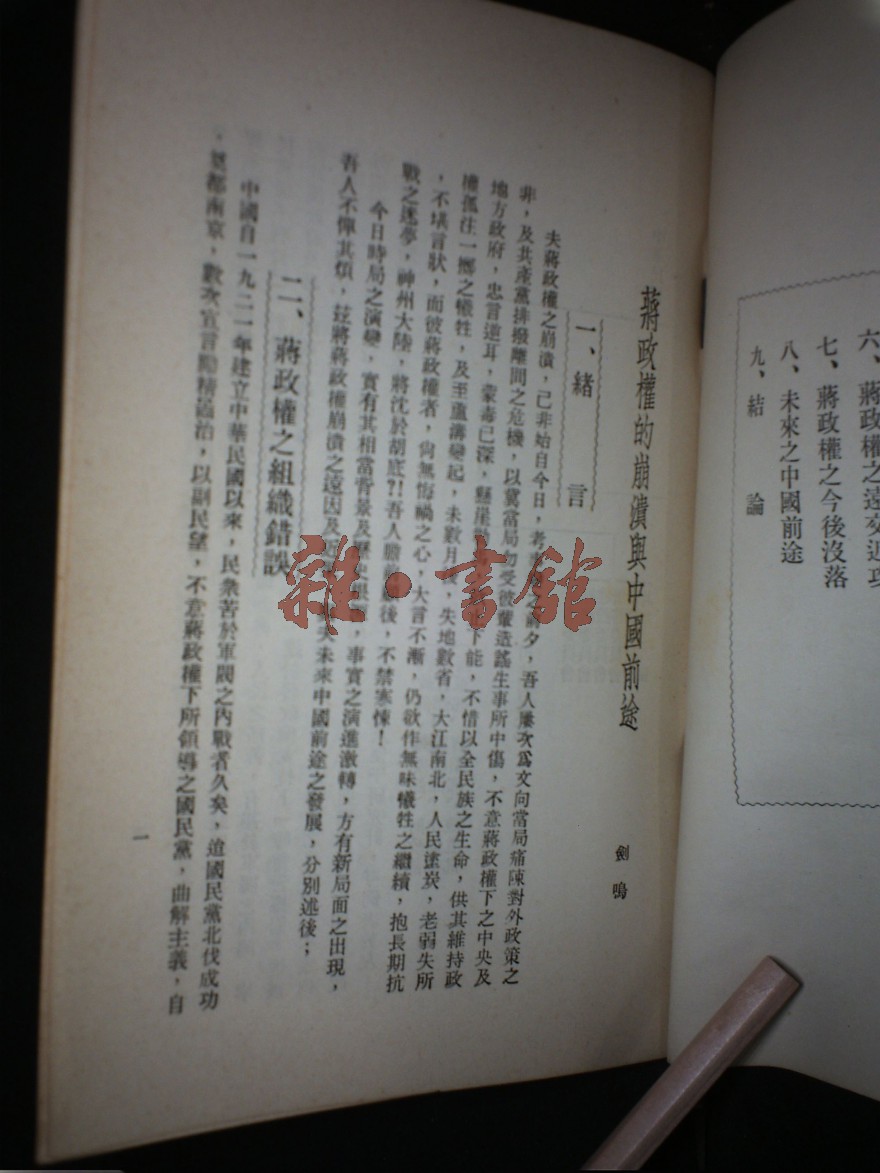 六、蔣政權之遠交近攻
七、蔣政權之今後沒落
八、未來之中國前途
九、結論
蔣政權的崩潰與中國前途
劍鳴
一、緒言
夫蔣政權之崩潰,已非始自今日,考之前夕,吾人屢次爲文向當局痛陳對外政策之
非,及共產黨排撥離間之危機,以冀當局勿受彼輩造謠生事所中傷,不意蔣政權下之中央及
地方政府,忠言逆耳,蒙毒已深,懸崖下能,不惜以全民族之生命,供其維持政
權孤注一擲之犧牲,及至蘆溝變起,未數月失地數省,大江南北,人民塗炭,老弱失所
,不堪言狀,而彼蔣政權者,尙無悔禍之心,大言不漸,仍欲作無味犧牲之繼續,抱長期抗
戰之迷夢,神州大陸,將沈於胡底?!吾人瞻前後,不禁寒悚!
今日時局之演變,實有其相當背景及歷史根,事實之演進激轉,方有新局面之出現,
吾人不憚其煩,茲將蔣政權崩潰之遠因及夫未來中國前途之發展,分別述後;
二、蔣政權之組織錯誤
中國自一九二一年建立中華民國以來,民衆苦於軍閥之內戰者久矣,迨國民黨北伐成功
,奠都南京,數次宣言勵精圖治,以副民望,不意蔣政權下所領導之國民黨,曲解主義,自
一
雜·書館